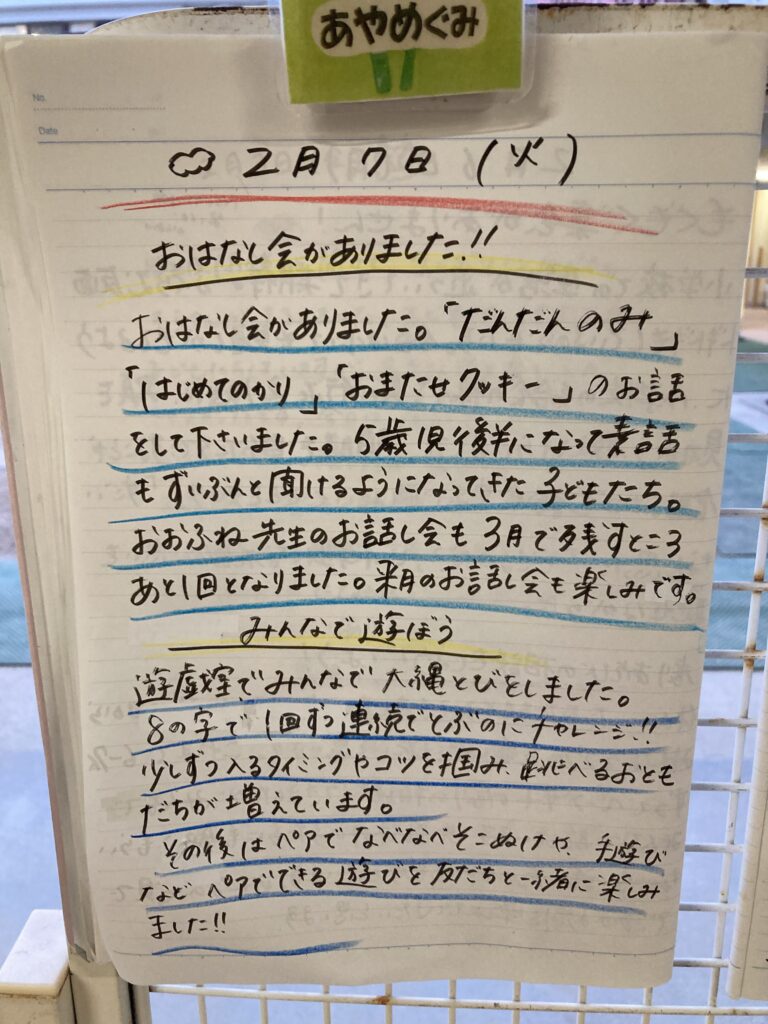 あやめぐみ
No.
Date
2月7日(火)
おはなし会がありました!!
おはなし会がありました。「だんだんのみ」
「はじめてのかり」「おまたせクッキー」のお話
をして下さいました。5歳児後半になって素話
もずいぶんと聞けるようになってきた子どもたち。
おおふね先生のお話し会も3月で残すところ
あと1回となりました。来月のお話し会も楽しみです。
みんなで遊ぼう
遊戯室でみんなで大縄とびをしました。
8の字で1回ずつ連続でとぶのにチャレンジ!!
少しずつ入るタイミングやコツを掴み、跳べるおとも
だちが増えています。
その後はペアでなべなべそこぬけや、手遊び
などペアでできる遊びを友だちと一緒に楽しみ
ました!!